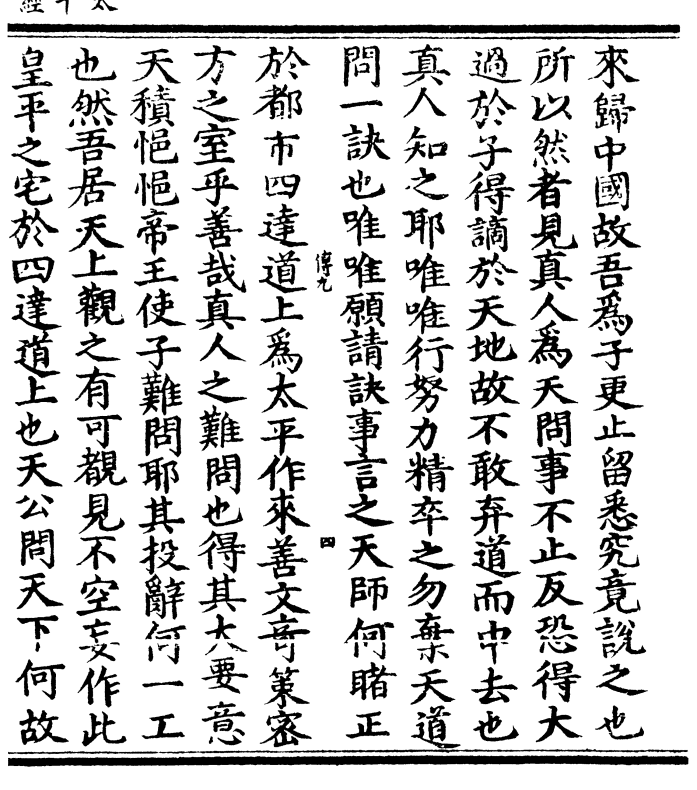 來歸中國故吾爲子更止留悉究竟說之也
所以然者見真人爲天問事不止反恐得大
過於子得謫於天地故不敢弃道而中去也
真人知之耶唯唯行努力精卒之勿棄天道
問一訣也唯唯願請訣事言之天師何睹正
傅九
四
於都市四達道上爲太平作來善文奇策密
方之室乎善哉真人之難問也得其大要意
天積悒悒帝王使子難問耶其投辭何一工
也然吾居天上觀之有可覩見不空妄作此
皇平之宅於四達道上也天公問天下何故